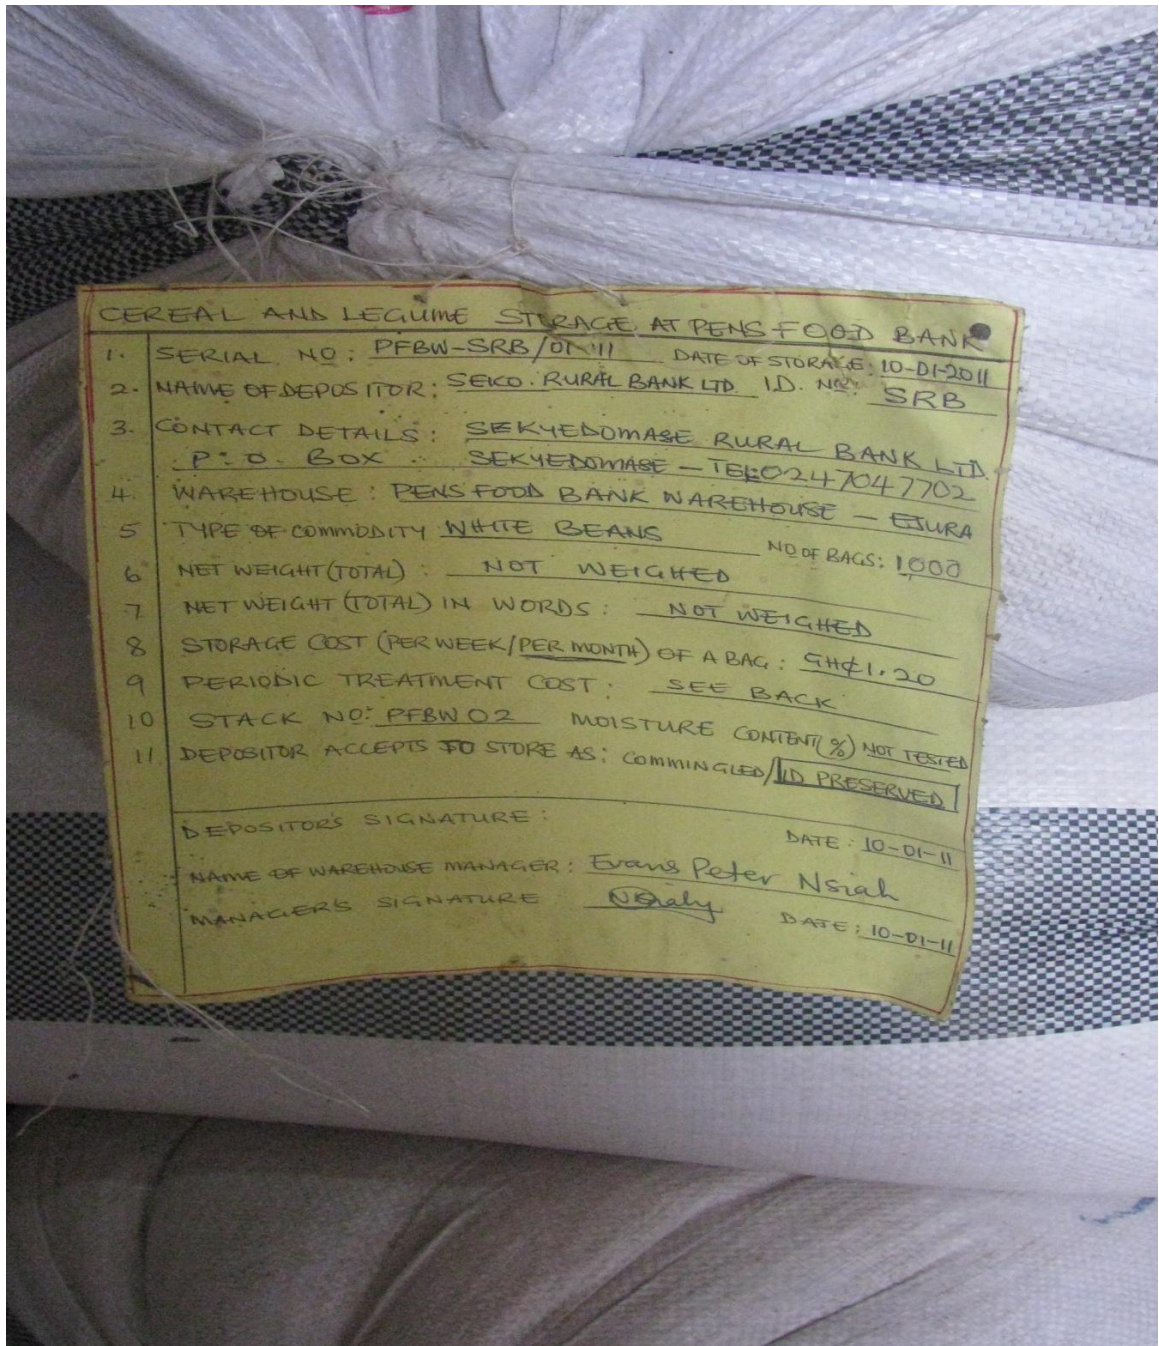 CEREAL AND LEGUME STORAGE AT PENS FOOD BANK
1. SERIAL NO: PFBW-SRB/01-11 DATE OF STORAGE: 10-01-2011
2. NAME OF DEPOSITOR: SEKO. RURAL BANK LTD. I.D. NO: SRB
3. CONTACT DETAILS: SEKYEDOMASE RURAL BANK LTD.
P.O. BOX SEKYEDOMASE - TEL 0247047702
4. WAREHOUSE: PENS FOOD BANK WAREHOUSE - EJURA
5 TYPE OF COMMODITY WHITE BEANS NO OF BAGS: 1000
6 NET WEIGHT (TOTAL): NOT WEIGHED
7 NET WEIGHT (TOTAL) IN WORDS: NOT WEIGHED
8 STORAGE COST (PER WEEK/PER MONTH) OF A BAG: GH¢1.20
9 PERIODIC TREATMENT COST: SEE BACK
10 STACK NO: PFBW 02 MOISTURE CONTENT (%) NOT TESTED
11. DEPOSITOR ACCEPTS TO STORE AS: COMMINGLED/ID PRESERVED
DEPOSITOR'S SIGNATURE: DATE: 10-01-11
NAME OF WAREHOUSE MANAGER: Evans Peter Nsiah
MANAGER'S SIGNATURE DATE: 10-01-11